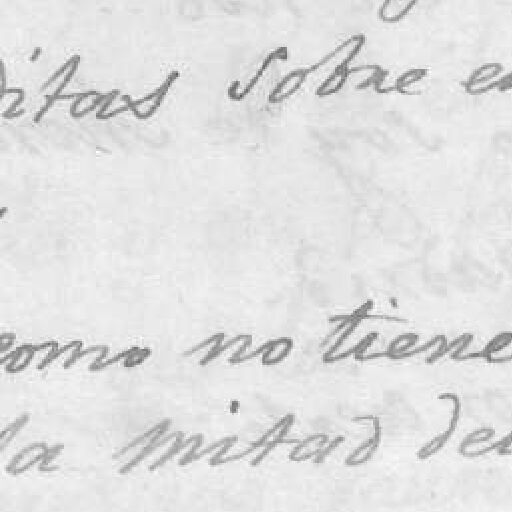 sobre
como no tiene
la mitad del